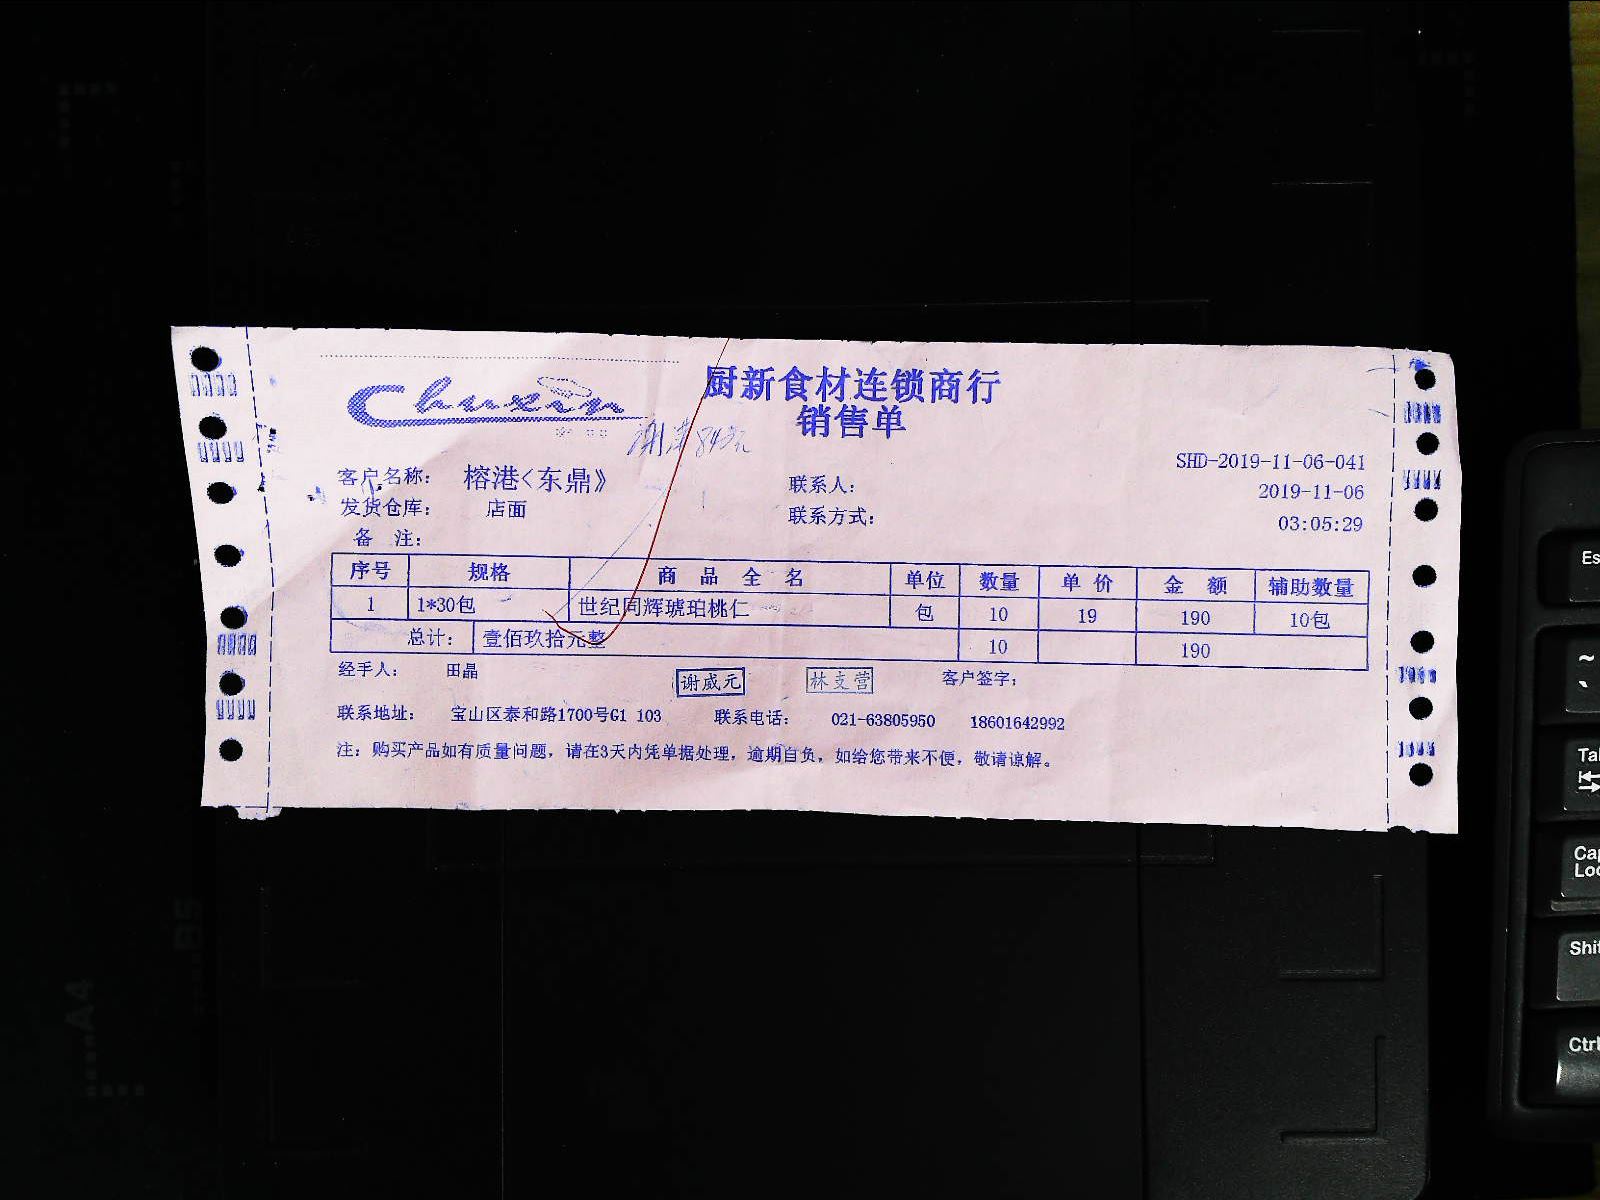 Chuxin
厨新食材连锁商行
销售单
SHD-2019-11-06-041
客户名称： 榕港<东鼎》 联系人： 2019-11-06
发货仓库： 店面 联系方式： 03:05:29
备 注：
序号 规格 商 品 全 名 单位 数量 单 价 金 额 辅助数量
1 1*30包 世纪同辉琥珀桃仁 包 10 19 190 10包
总计： 壹佰玖拾元整 10 190
经手人： 田晶 谢威元 林支营 客户签字；
联系地址： 宝山区泰和路1700号G1 103 联系电话： 021-63805950 18601642992
注：购买产品如有质量问题，请在3天内凭单据处理，逾期自负，如给您带来不便，敬请谅解。
Es
~
`
Tab
Cap
Loc
Shif
Ctrl
A4
B5